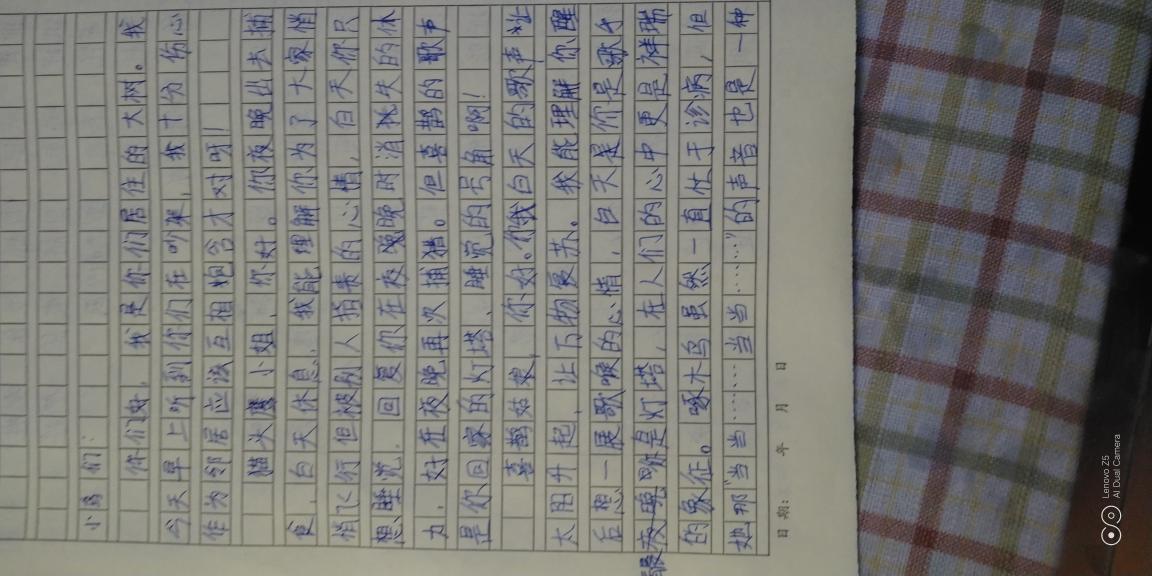 小鸟们：
你们好，我是你们居住的大树。我
今天早上听到你们在吵架，我十分伤心
作为邻居应该互相包容才对呀！
猫头鹰小姐，你好。你夜晚出去捕
食，白天休息，我能理解你为了大家悄
悄飞行但被别人指责的心情，白天你只
想睡觉，回复你在夜晚时消耗失的体
力，好在夜晚再次捕猎。但喜鹊的歌声
是你回家的灯塔、睡觉的号角啊！
喜鹊姑娘，你好。你我白天的歌声让
太阳升起，让万物复苏。我能理解你醒
后想一展歌喉的心情，白天是你是歌手
夜晚你是灯塔，在人们的心中更是祥瑞
的象征。啄木鸟虽然一直忙于诊病，但
她那"当当……当当……"的声音也是一种
日期： 年 月 日
Lenovo Z5
AI Dual Camera